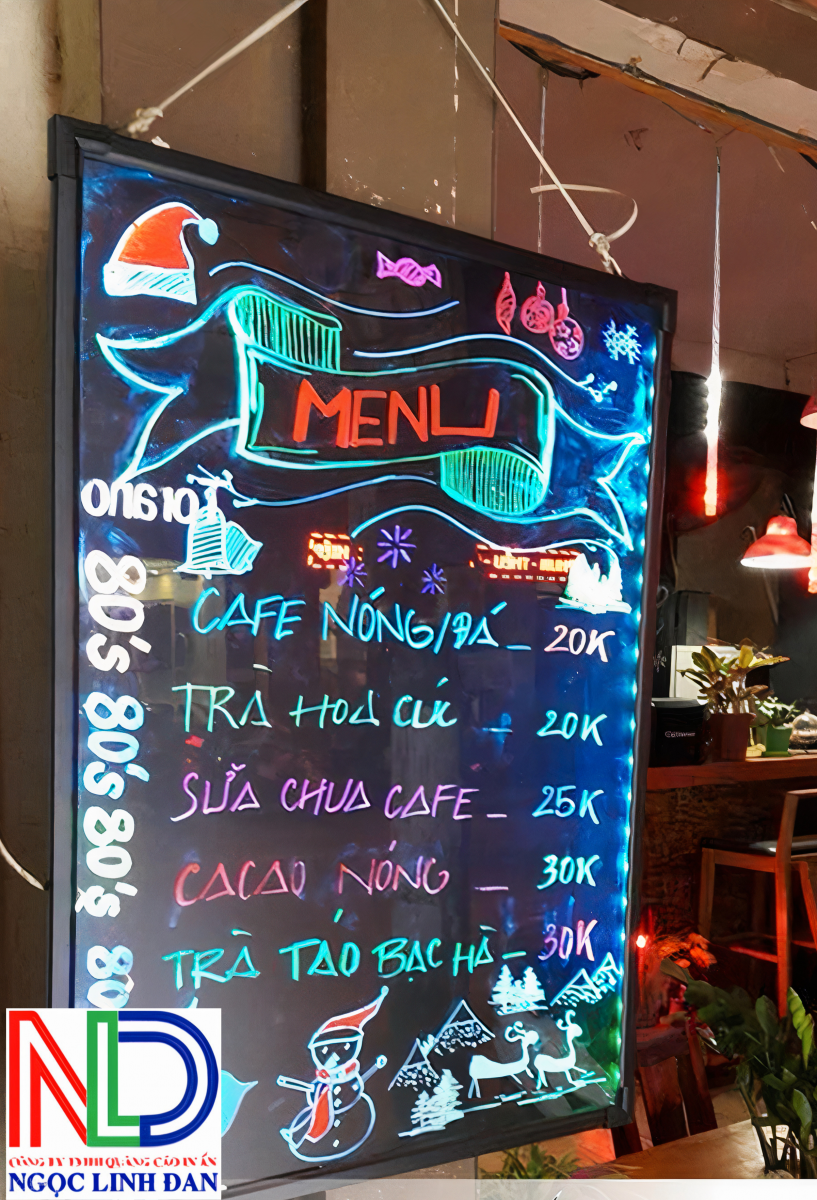 MENU
CAFE NÓNG/ĐÁ - 20K
TRÀ HOA CÚC - 20K
SỮA CHUA CAFE - 25K
CACAO NÓNG - 30K
TRÀ TÁO BẠC HÀ - 30K
80's
80's
80's
80
CÔNG TY TNHH QUẢNG CÁO IN ẤN
NGỌC LINH ĐAN